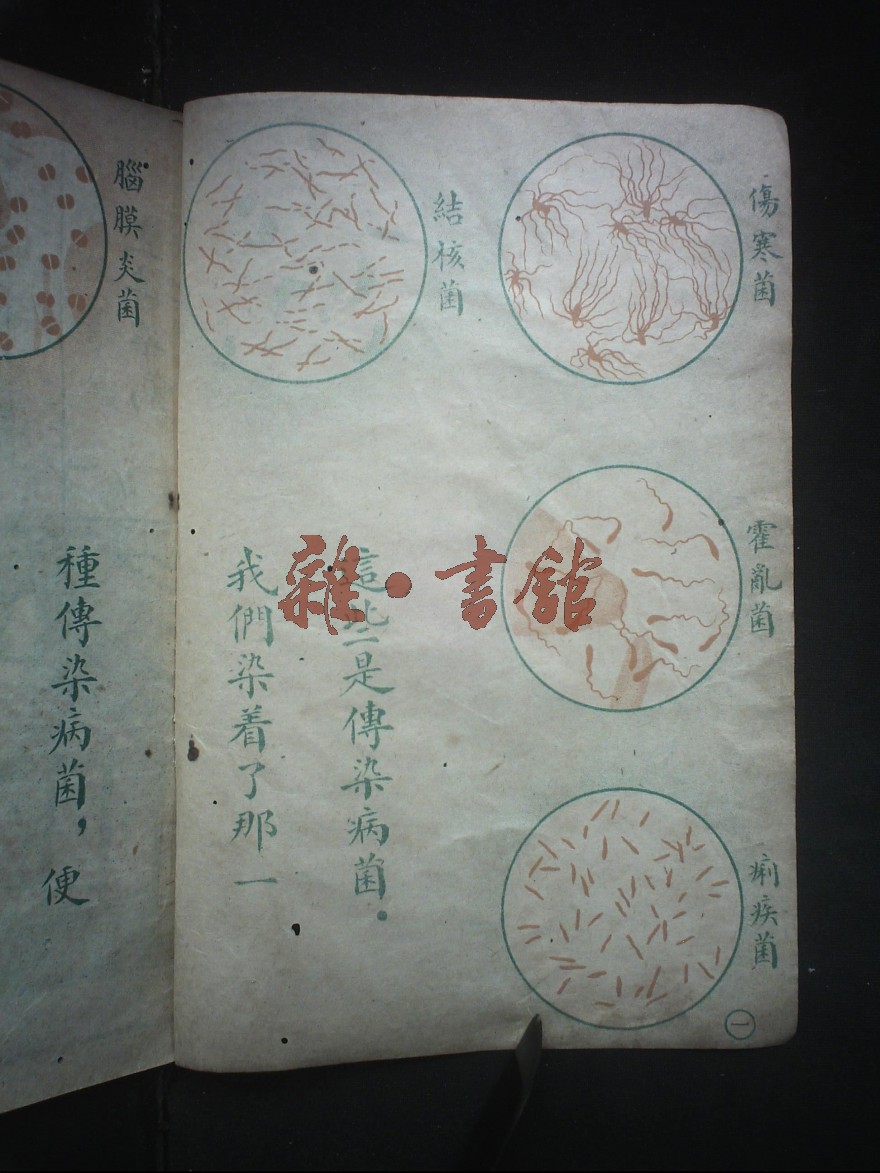 傷寒菌
霍亂菌
痢疾菌
結核菌
這些是傳染病菌.
我們染着了那一
㊀
腦膜炎菌
種傳染病菌,便
雜·書館